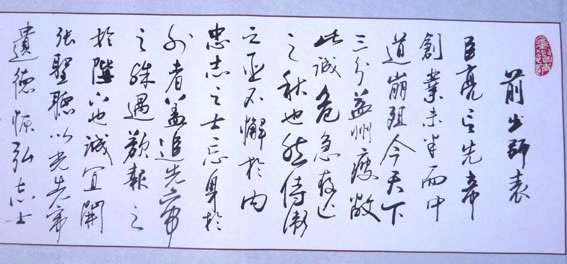 前出師表
臣亮言先帝
創業未半而中
道崩殂今天下
三分益州疲敝
此誠危急存亡
之秋也然侍衛
之臣不懈於內
忠志之士忘身於
外者蓋追先帝
之殊遇欲報之
於陛下也誠宜開
張聖聽以光先帝
遺德恢弘志士